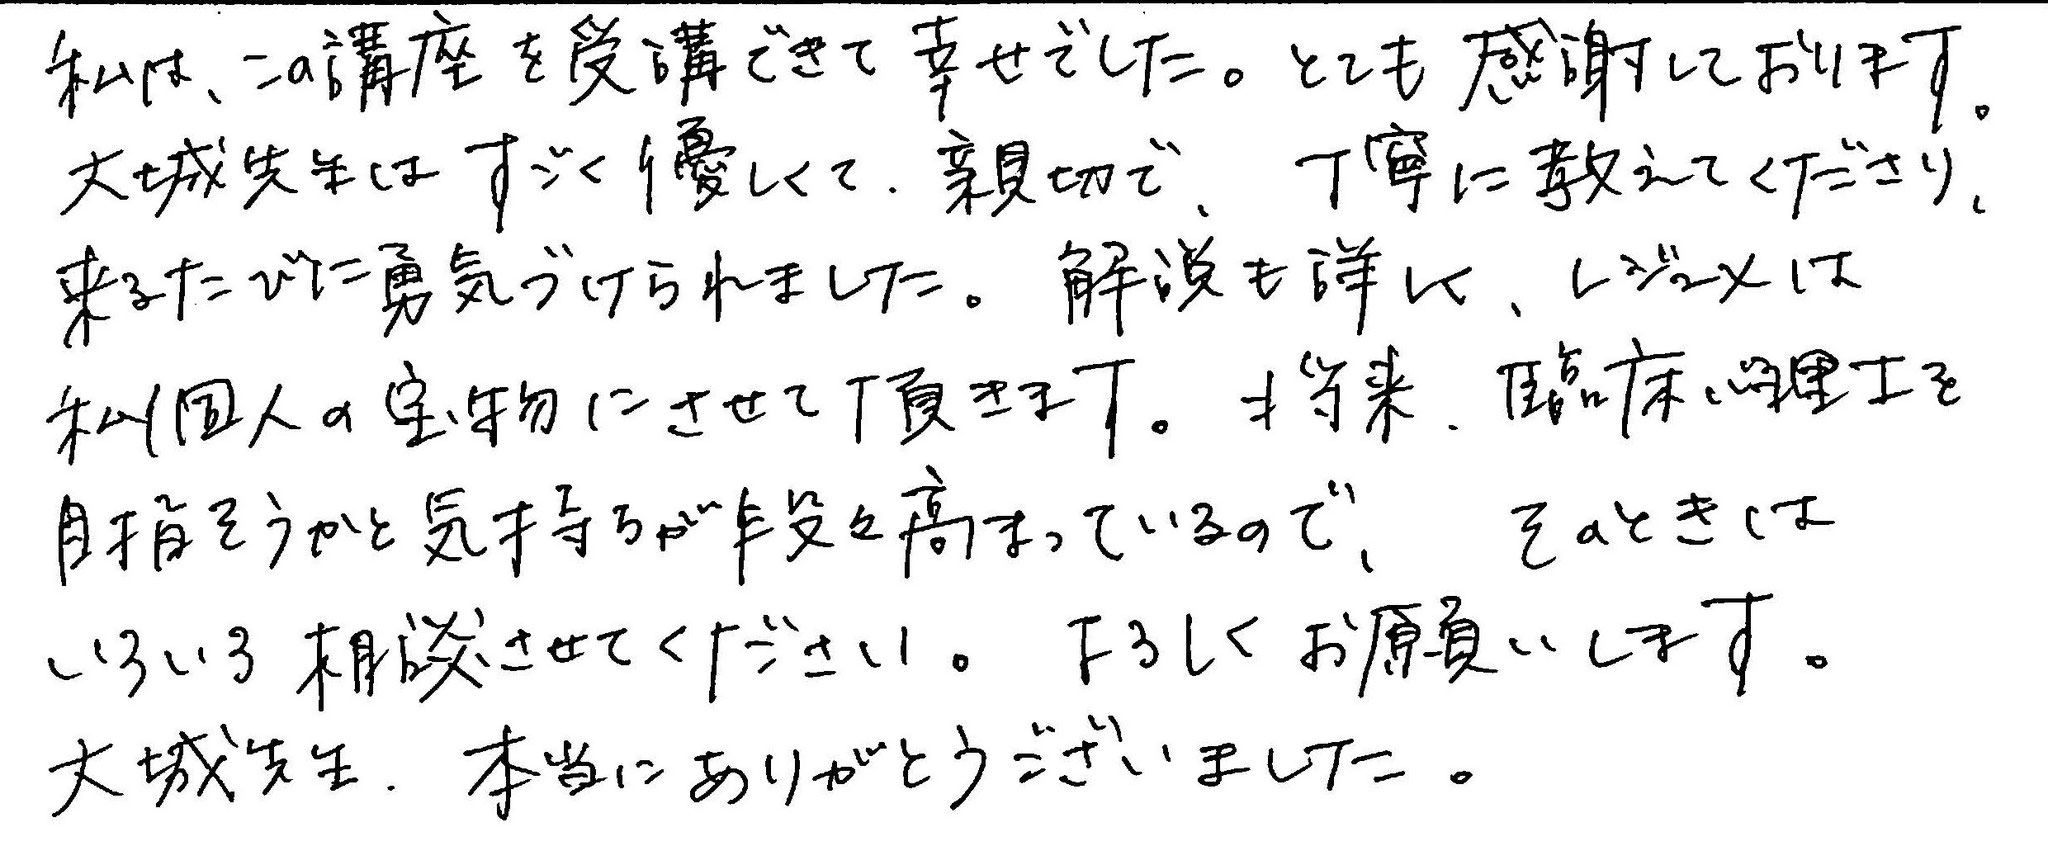 私は、この講座を受講できて幸せでした。とても感謝しております。
大城先生はすごく優しくて、親切で、丁寧に教えてくださり、
来るたびに勇気づけられました。解説も詳しく、レジュメは
私個人の宝物にさせて頂きます。将来、臨床心理士を
目指そうかと気持ちが段々高まっているので、そのときは
いろいろ相談させてください。よろしくお願いします。
大城先生、本当にありがとうございました。